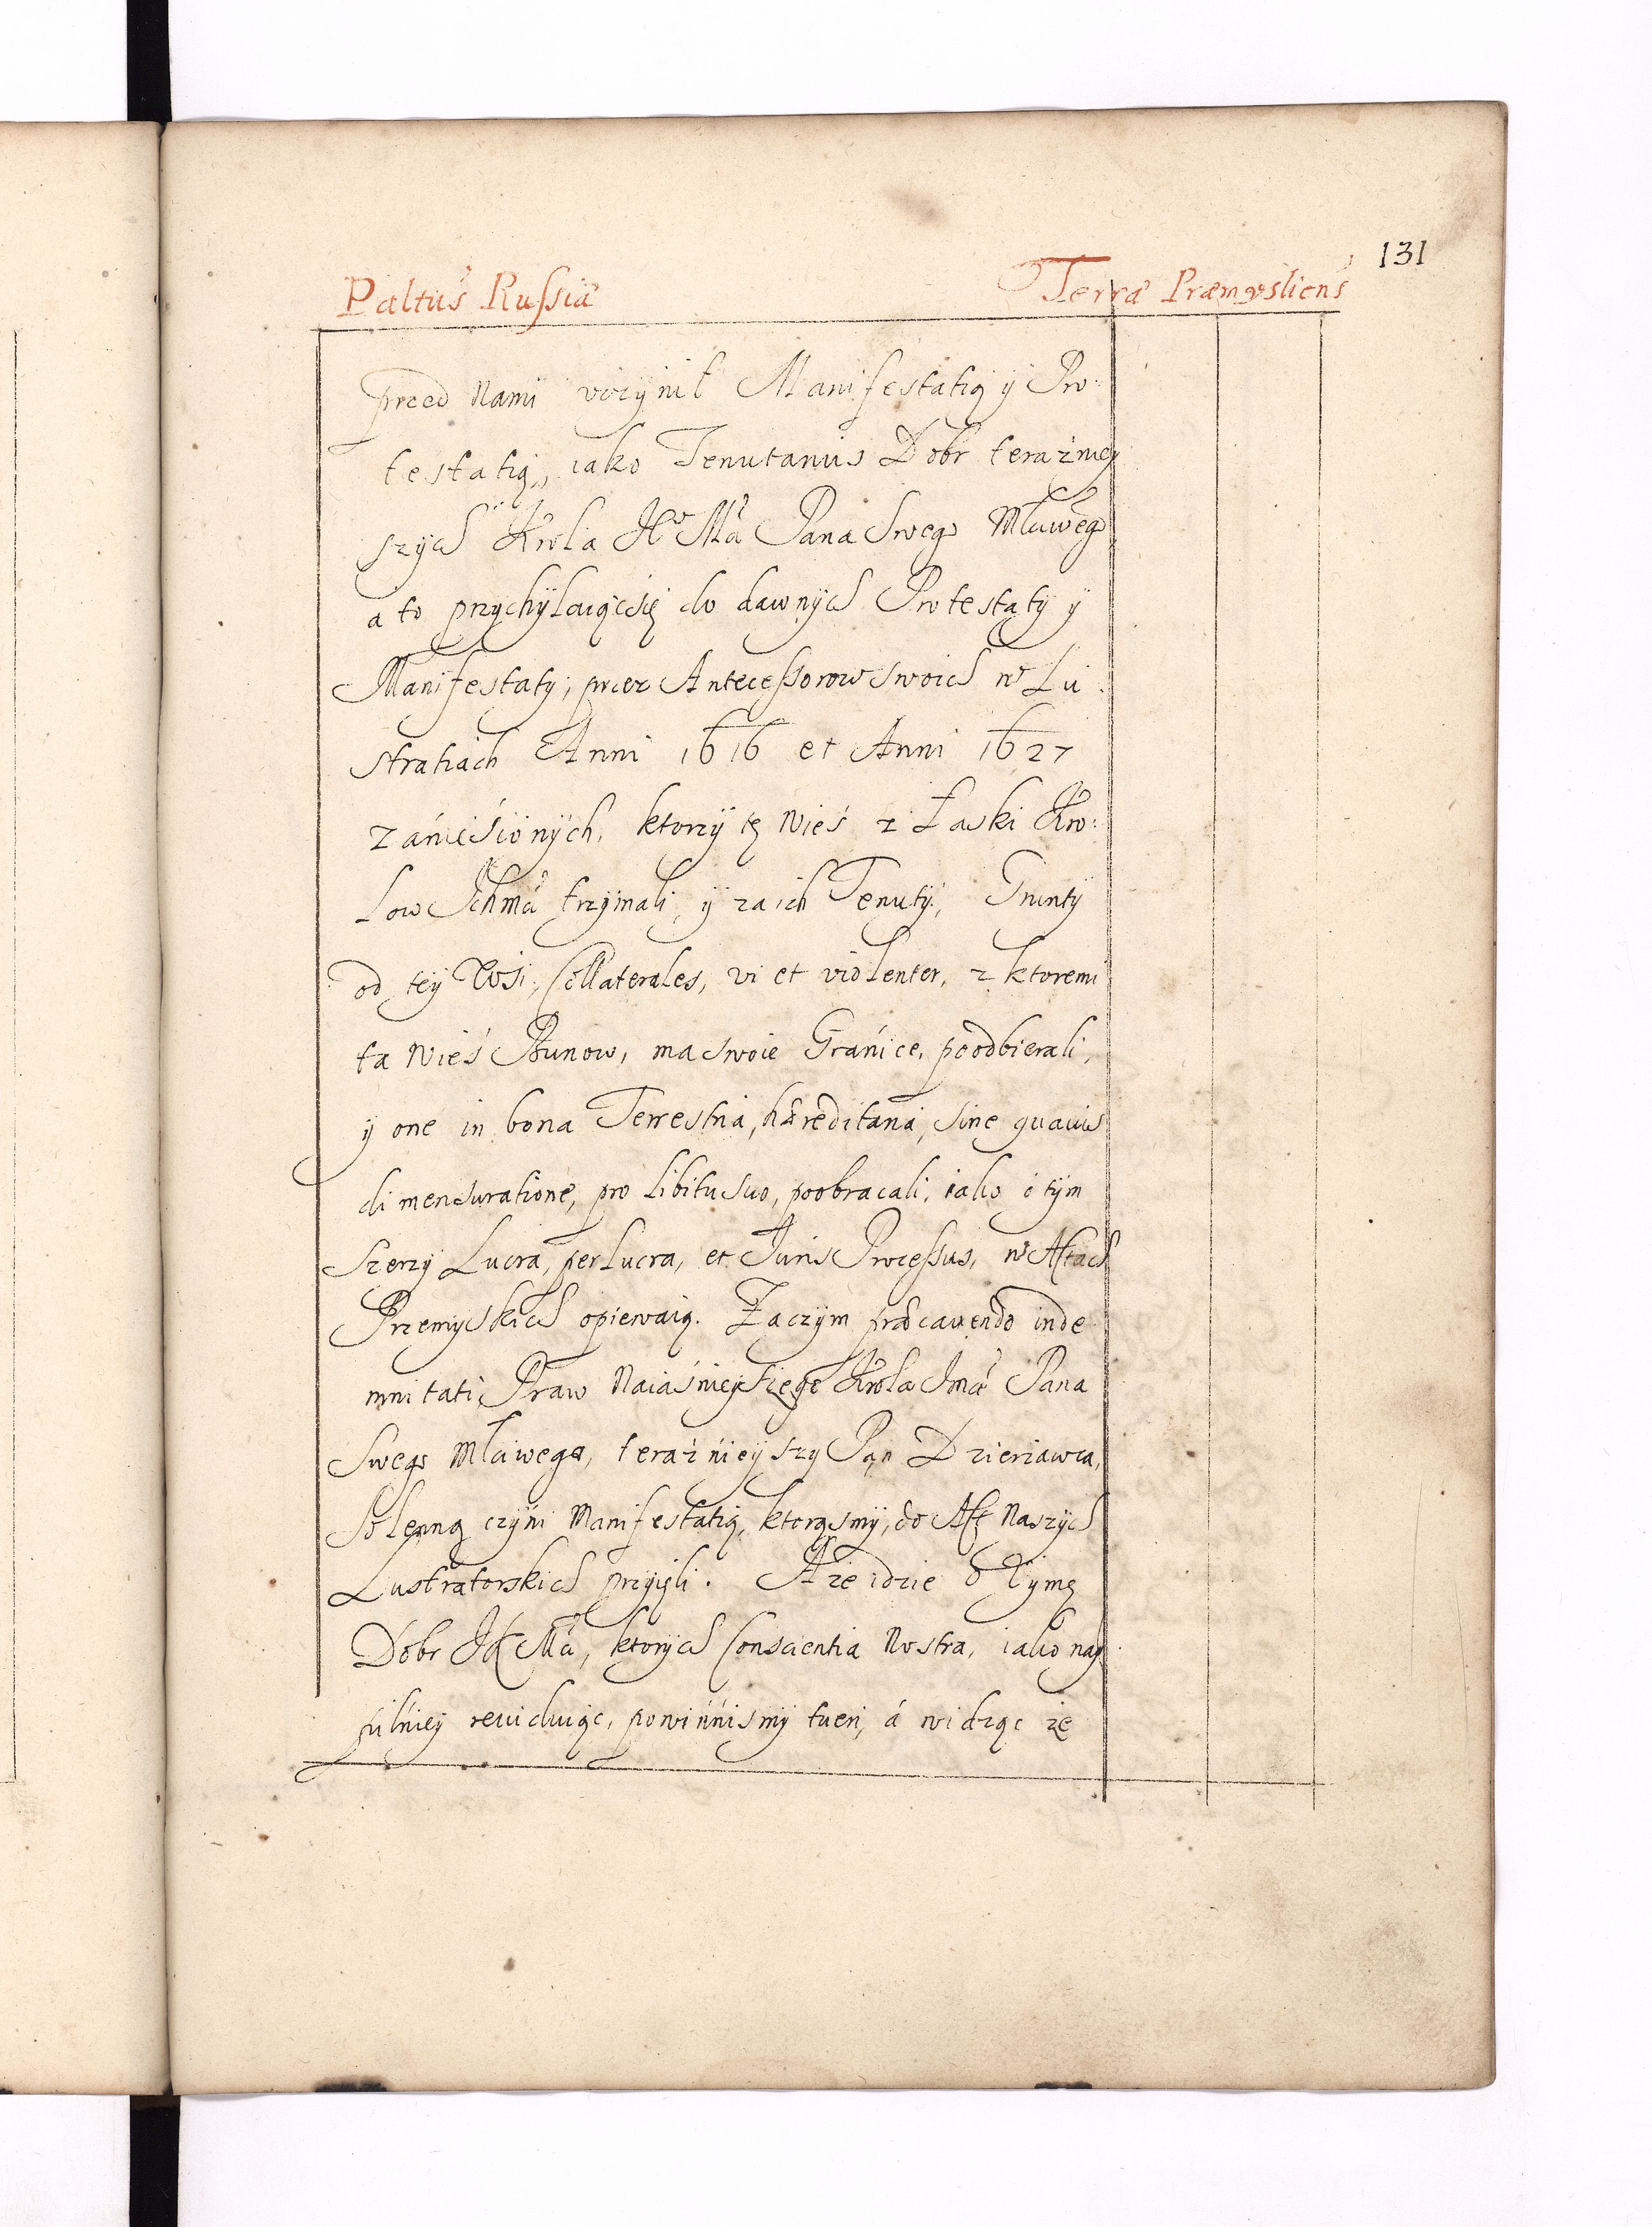 131
Paltus Russiæ Terræ Præmysliens
przed Nami vczynił Manifestatią y Pro-
testatią, iako Tenutarius Dobr teraźniey
szych Krola JeMci Pana Swego Mławego
a to przychylaiącsię do dawnych Protestaty y
Manifestaty, przez Antecessorow swoich w Lu-
stratiach Anni 1616 et Anni 1627
zanieśionych, ktorzy tę Wieś z Łaski Kro-
low Ichmci trzymali, y za ich Tenuty, Grunty
od tey Wsi, Collaterales, vi et violenter, z ktoremi
ta Wieś Bunow, ma swoie Granice, poodbierali,
y one in bona Terrestria, hæreditaria, sine quavis
dimensuratione, pro libitu suo, poobracali, iako o tym
Szerzy Lucra, perlucra, et Juris Processus, w Actach
Przemyskich opiewaią. Zaczym præcavendo inde
mnitati, Praw Naiaśnieyszego Krola Jmci Pana
Swego Mławego, teraźnieyszy Pan Dzierżawca,
Solenną czyni Manifestatią, ktorąsmy, do Act Naszych
Lustratorskich przyięli. A że idzie o
Dobr JKMci, ktorych Conscientia Nostra, iako nay
pilniey reuiduiąc, powinnismy tueri, á widząc że